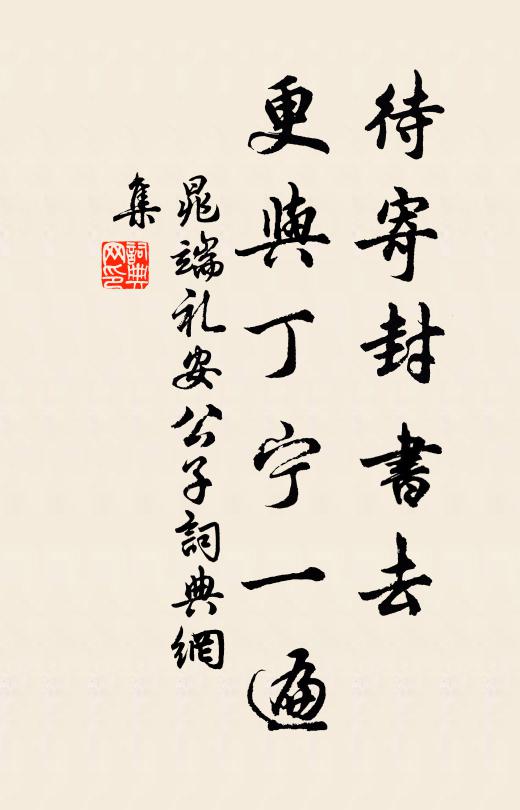 待寄封書去
更與丁宁一遍
晁端礼安公子詞典網
集
詞典网印